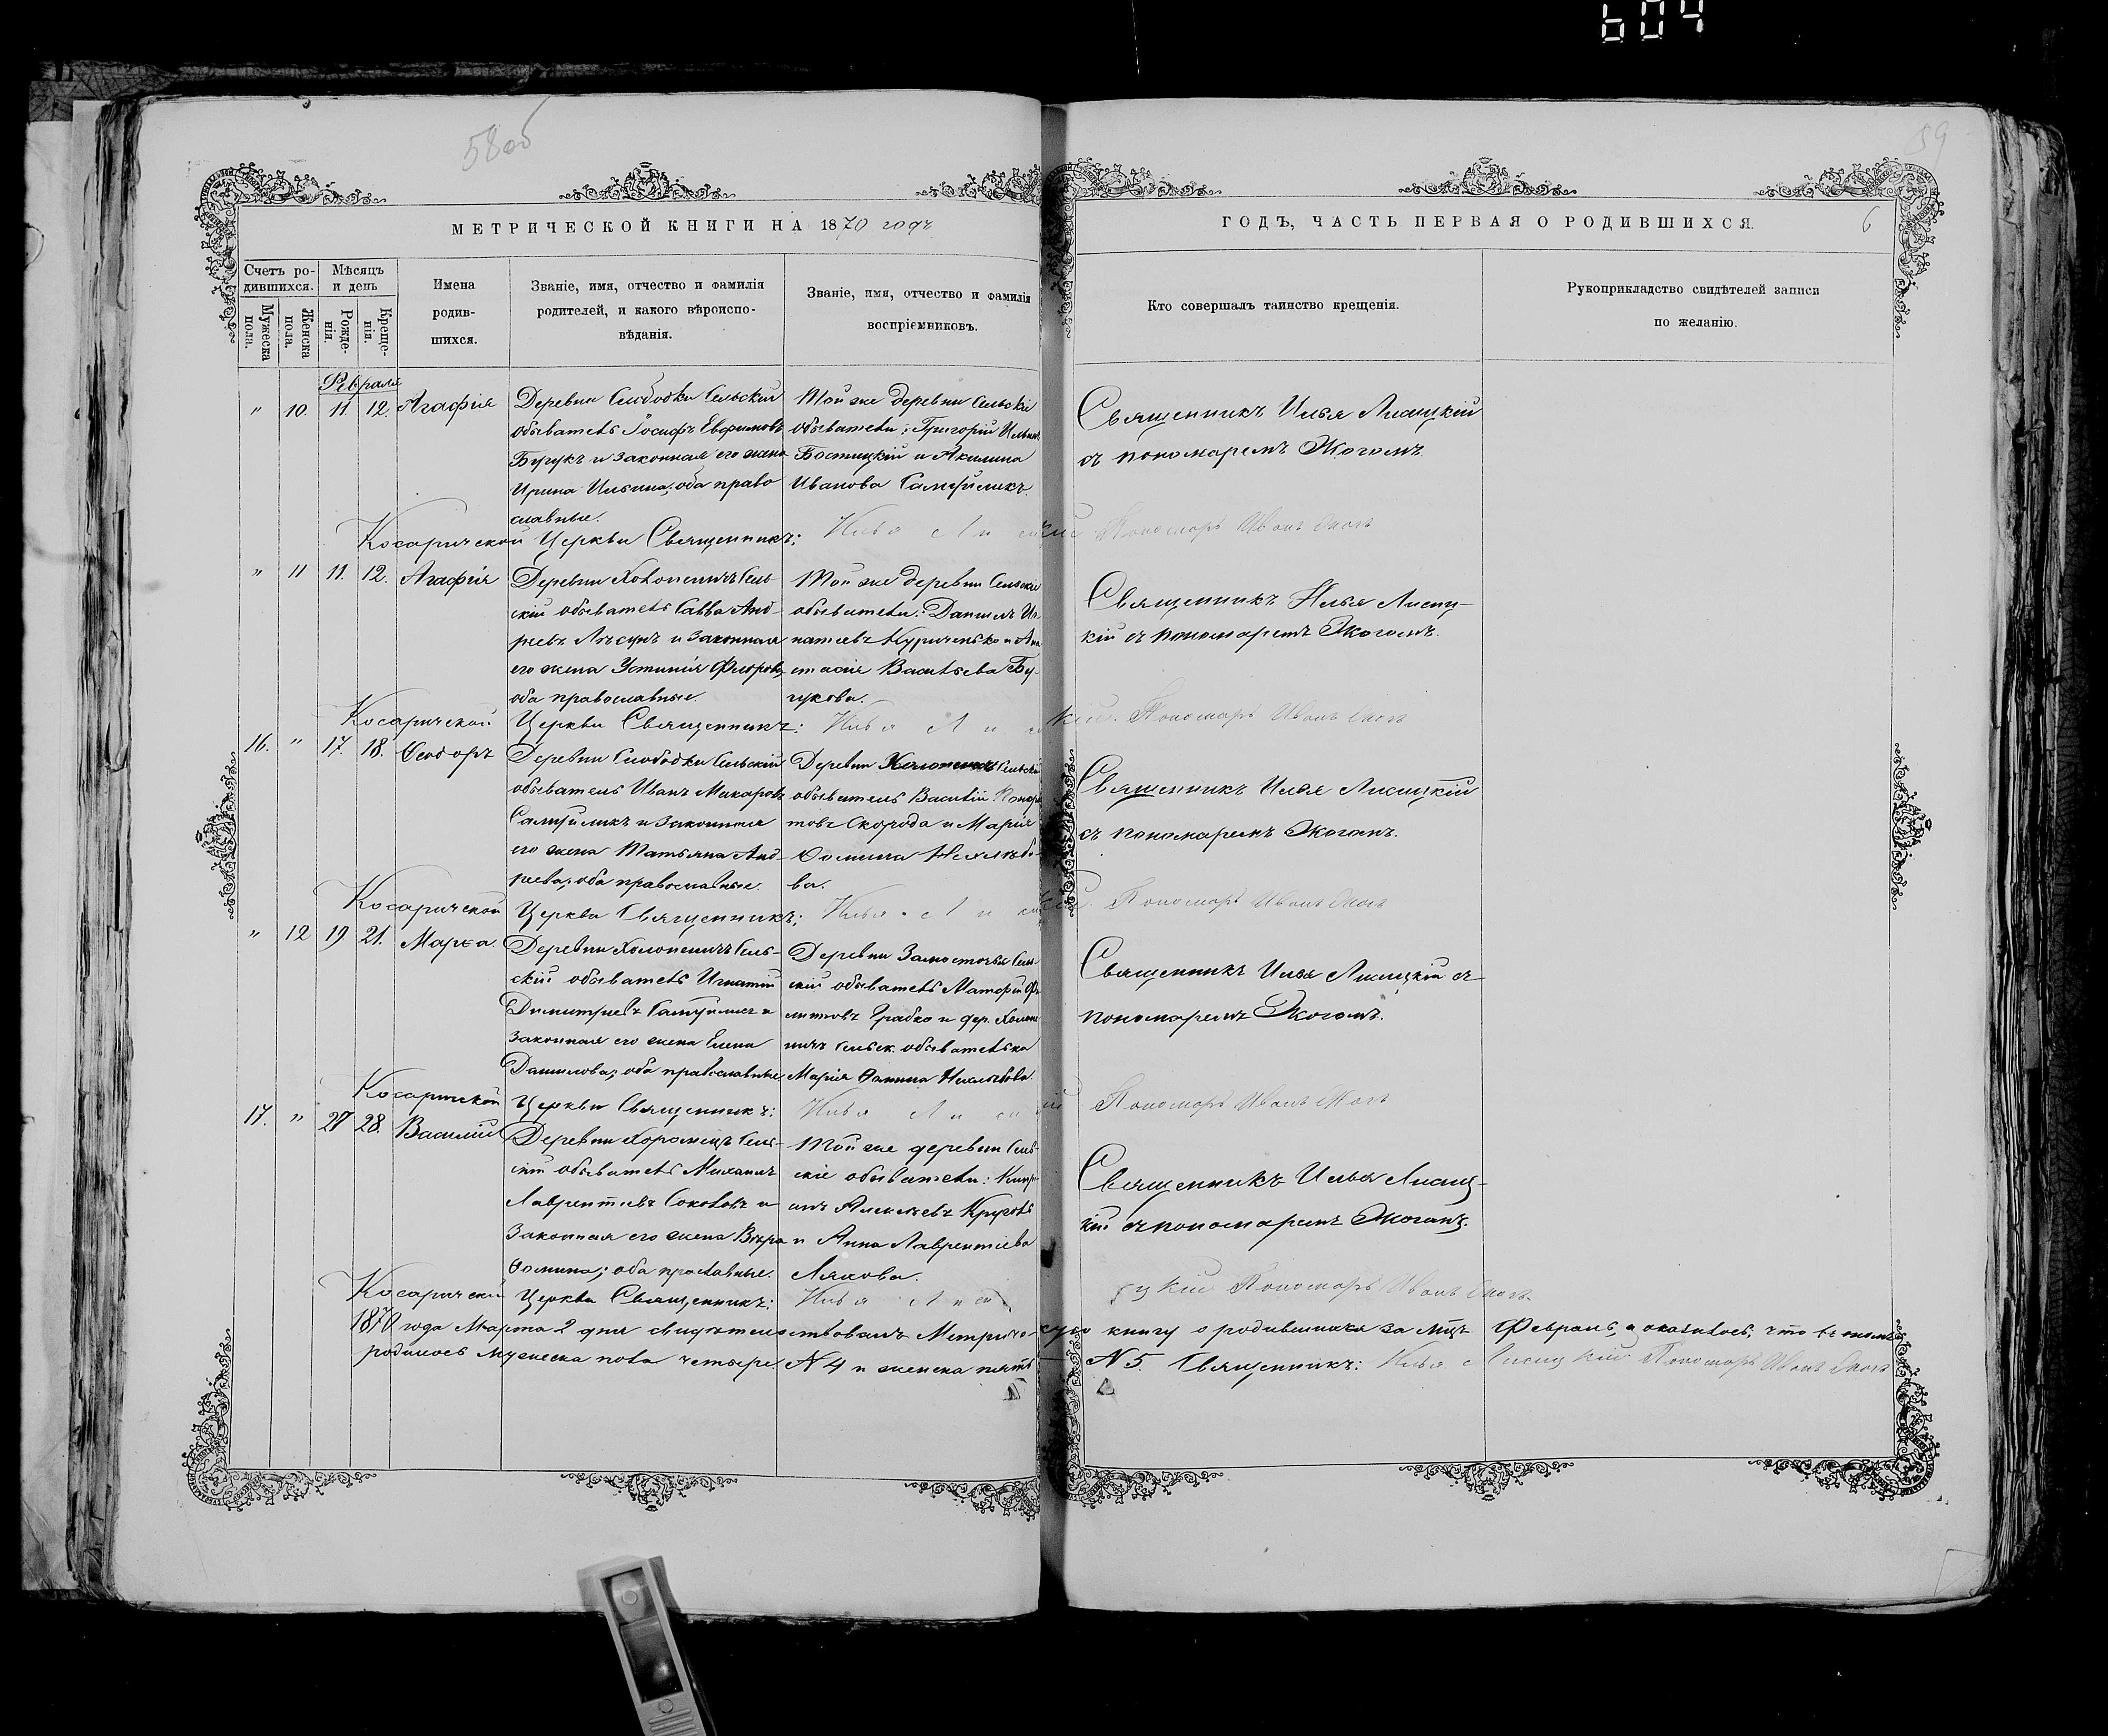 604
58об
59
МЕТРИЧЕСКОЙ КНИГИ НА 1870 годъ
ГОДЪ, ЧАСТЬ ПЕРВАЯ О РОДИВШИХСЯ.
6
Счетъ ро-
дившихся.
Мужеска
пола.
Женска
пола.
Мѣсяцъ
и день
Рожде-
нія.
Креще-
нія.
Имена
родив-
шихся.
Званіе, имя, отчество и фамилія
родителей, и какого вѣроиспо-
вѣданія.
Званіе, имя, отчество и фамилія
воспріемниковъ.
Кто совершалъ таинство крещенія.
Рукоприкладство свидѣтелей записи
по желанію.
Февраля
" 10. 11. 12. Агафія
Деревни Слободки Сельскій
обыватель Іосифъ Евфимовъ
Бугукъ и законная его жена
Ирина Ильина, оба право
славные.
Той же деревни Сельскіе
обыватели: Григорій
и Акилина
Иванова
Священникъ Илья Лисицкій
съ пономаремъ Жогомъ
Косаричской Церкви Священникъ: Илья Лисицкій Пономарь Иванъ
" 11 11. 12. Агафія
Деревни Холопеничъ Сель-
скій обыватель Савва Анд-
реевъ и законная
его жена Устинія
оба православные.
Той же деревни Сельскіе
обыватели: Даніилъ Иг-
натьевъ и Ана
стасія Васильева Бу-
гукова.
Священникъ Илья Лисиц-
кій съ пономаремъ Жогомъ.
Косаричской Церкви Священникъ: Илья Лисицкій. Пономарь Иванъ
16. " 17. 18. Ѳеодоръ
Деревни Слободки Сельскій
обыватель Иванъ Макаровъ
и законная
его жена Татьяна Анд-
реева; оба православные.
Деревни Холопеничъ Сельскій
обыватель Василій
Скорода и Марія
Ѳомина
ва.
Священникъ Илья Лисицкій
съ пономаремъ Жогомъ.
Косаричской Церкви Священникъ: Илья Лисицкій. Пономарь Иванъ
" 12 19 21. Марѳа.
Деревни Холопеничъ Сель-
скій обыватель Игнатій
Димитріевъ и
законная его жена Елена
Данилова; оба православные.
Деревни Замосточья Сель
скій обыватель
Грабко и дер.
Сельск. обывателька
Марія Ѳомина
Священникъ Илья Лисицкій съ
пономаремъ Жогомъ.
Косаричской Церкви Священникъ: Илья Лисицкій Пономарь Иванъ
17. " 27 28. Василій
Деревни Хоромецъ Сель-
скій обыватель Михаилъ
Лаврентіевъ Соколовъ и
законная его жена Вѣра
Ѳомина; оба православные.
Той же деревни Сель-
скіе обыватели:
Алексѣевъ
и Анна Лаврентіева
Ляхова.
Священникъ Илья Лисиц-
кій съ пономаремъ Жогомъ.
Косаричской Церкви Священникъ: Илья Лисицкій Пономарь Иванъ
1870 года Марта 2 дня свидѣтельствовалъ Метрическую книгу о родившихся за мцъ Февраль, и оказалось, что въ
родилось мужеска пола четыре N 4 и женска пять N 5. Священникъ: Илья Лисицкій Пономарь Иванъ